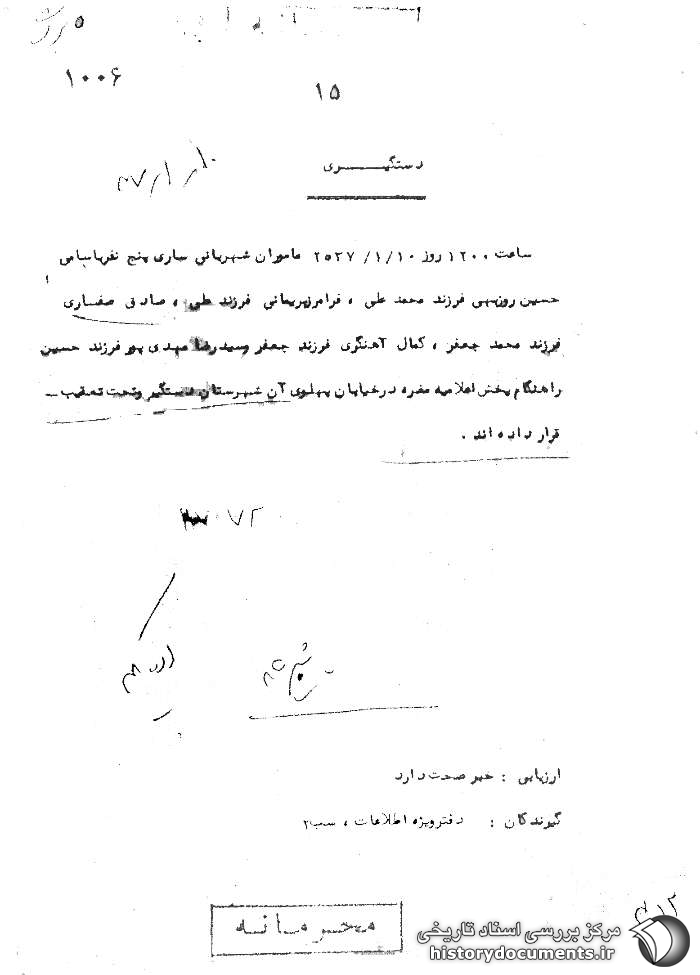 ۱۰۰۶
۱۵
دستگیــــری
ساعت ۱۲۰۰ روز ۲۵۳۷/۱/۱۰ ماموران شهربانی ساری پنج نفر باسامی
حسین روزبهی فرزند محمد علی ، فرامرز نریمانی فرزند علی ، صادق صفاری
فرزند محمد جعفر ، کمال آهنگری فرزند جعفر وسیدرضا مهدی پور فرزند حسین
راهنگام پخش اعلامیه مضره درخیابان پهلوی آن شهرستان دستگیر وتحت تعقیب ــ
قرار داده اند .
ارزیابی : خبر صحت دارد
گیرندگان : دفتر ویژه اطلاعات ، سب۲
محرمانه
مرکز بررسی اسناد تاریخی
historydocuments.ir